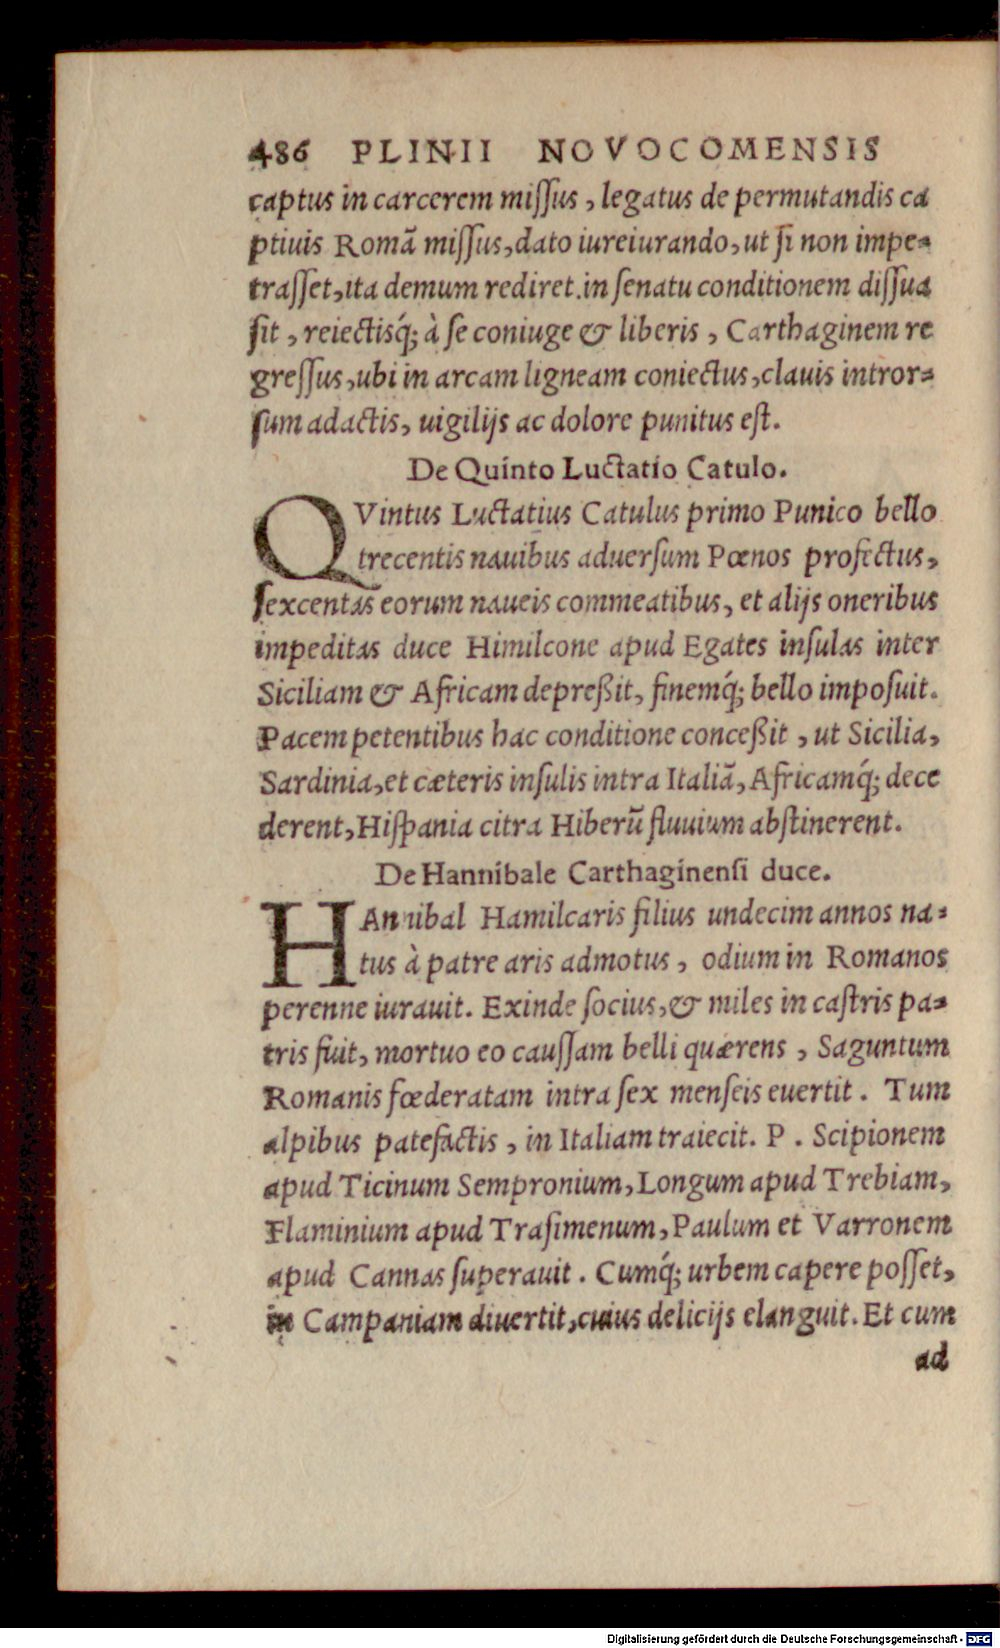 486 PLINII NOVOCOMENSIS
captus in carcerem miſſus, legatus de permutandis ca
ptiuis Romã miſſus, dato iureiurando, ut ſi non impe-
traſſet, ita demum rediret. in ſenatu conditionem diſſua
ſit, reiectisq́; à ſe coniuge & liberis, Carthaginem re
greſſus, ubi in arcam ligneam coniectus, clauis intror-
ſum adactis, uigilijs ac dolore punitus eſt.
De Quinto Luctatio Catulo.
QVintus Luctatius Catulus primo Punico bello
trecentis nauibus aduerſum Pœnos profectus,
ſexcentas eorum naueis commeatibus, et alijs oneribus
impeditas duce Himilcone apud Egates inſulas inter
Siciliam & Africam depreßit, finemq́; bello impoſuit.
Pacem petentibus hac conditione conceßit, ut Sicilia,
Sardinia, et cæteris inſulis intra Italiã, Africamq́; dece
derent, Hiſpania citra Hiberũ fluuium abſtinerent.
De Hannibale Carthaginenſi duce.
HAnnibal Hamilcaris filius undecim annos na-
tus à patre aris admotus, odium in Romanos
perenne iurauit. Exinde ſocius, & miles in caſtris pa-
tris fuit, mortuo eo cauſſam belli quærens, Saguntum
Romanis fœderatam intra ſex menſeis euertit. Tum
alpibus patefactis, in Italiam traiecit. P. Scipionem
apud Ticinum Sempronium, Longum apud Trebiam,
Flaminium apud Traſimenum, Paulum et Varronem
apud Cannas ſuperauit. Cumq́; urbem capere poſſet,
in Campaniam diuertit, cuius delicijs elanguit. Et cum
ad
Digitalisierung gefördert durch die Deutsche Forschungsgemeinschaft - DFG